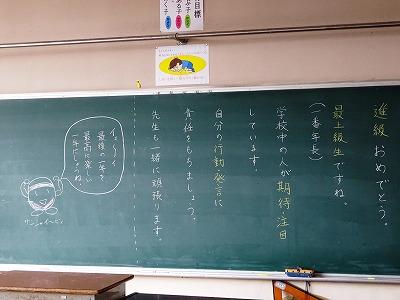 進級おめでとう。
最上級生ですね。
(一番年長)
学校中の人が期待・注目
しています。
自分の行動発言に
責任をもちましょう。
先生も一緒に頑張ります。
イ〜ィ
最後の一年を
最高に楽しい
一年にしようね